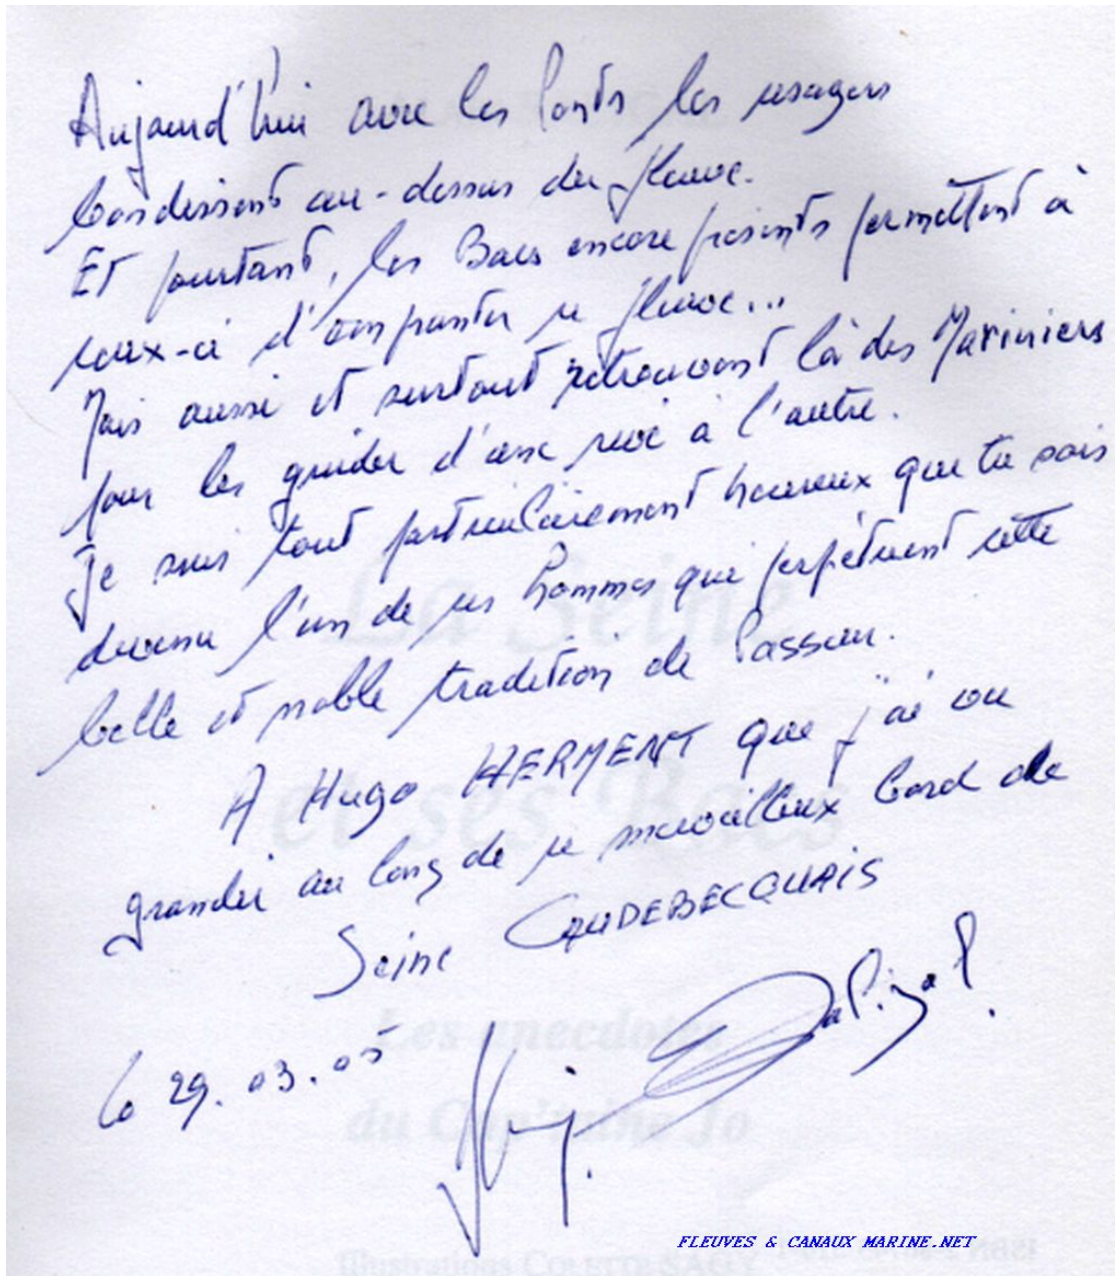 Aujourd'hui avec les Ponts les usagers
bondissent au-dessus du fleuve.
Et pourtant, les Bacs encore présents permettent à
ceux-ci d'emprunter ce fleuve...
Mais aussi et surtout retrouvent là des Mariniers
pour les guider d'une rive à l'autre.
Je suis tout particulièrement heureux que tu sois
devenu l'un de ces hommes qui perpétuent cette
belle et noble tradition de Passeur.
A Hugo HERMENT que j'ai vu
grandir au long de ce merveilleux bord de
Seine CAUDEBECQUAIS
le 29.03.05
La Seine
et ses Bacs
Les anecdotes
du Cap'taine Jo
Illustrations
ISBN
FLEUVES & CANAUX MARINE.NET